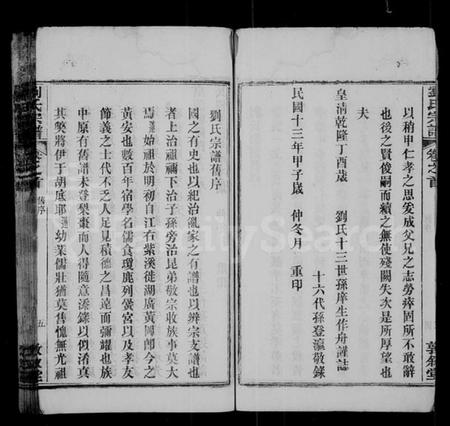 以稍申仁孝之思爰成父兄之志勞瘁固所不敢辭
也後之賢俊嗣而續之無使殘闕失次是所厚望也
夫
皇淸乾隆丁酉歲 劉氏十三世孫庠生作舟謹誌
十六代孫登瀛敬錄
民國十三年甲子歲 仲冬月 重印
劉氏宗譜舊序
國之有史也以紀治亂家之有譜也以辨宗支譜也
者上治祖禰下治子孫旁治昆弟敬宗收族事莫大
焉 始祖於明初自江右紫溪徙湖廣黃岡即今之
黃安也數百年宿學名儒食瓊鹿列黌宮以及孝友
節義之士代不乏人足見積德之昌遠彌耀也族
中原有舊譜未登梨棗而人得隨意添錄以似淆真
其弊將伊于胡底耶 幼業儒壯猶莫售愧無光祖
劉氏宗譜 卷之首 舊序 五 敦敘堂
劉氏宗譜 卷之首 敦敘堂